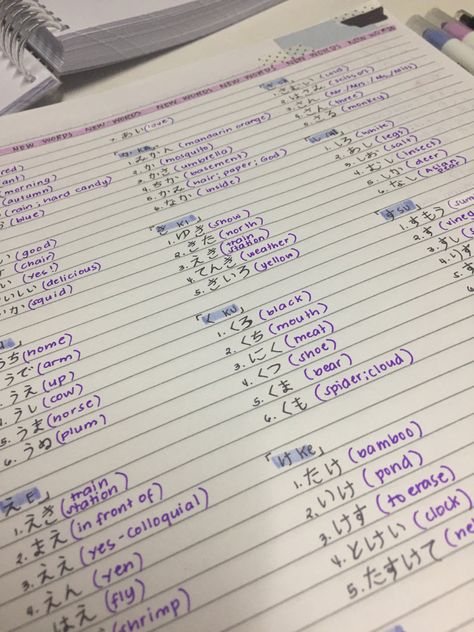 NEW WORDS NEW WORDS NEW WORDS NEW WORDS NEW WORDS NEW WORDS
red)
(morning)
(autumn)
(rain; hard candy)
(blue)
7. あい(love)
(good)
(chair)
(yes!)
(delicious)
いか(squid)
うち(home)
うで(arm)
うえ(up)
4. うし(cow)
5. うま(horse)
6. うめ(plum)
え E」
1. えき(train station)
2. まえ(in front of)
3. ええ(yes-colloquial)
4. えん(yen)
はえ(fly)
(shrimp)
「か KA」
1. みかん(mandarin orange)
2. か(mosquito)
3. かさ(umbrella)
4. ちか(basement)
5. かみ(hair; paper; God)
6. なか(inside)
「き KI」
1. ゆき(snow)
2. きた(north)
3. えき(train station)
4. てんき(weather)
5. きいろ(yellow)
「く KU」
1. くろ(black)
2. くち(mouth)
3. にく(meat)
4. くつ(shoe)
5. くま(bear)
6. くも(spider; cloud)
「け Ke」
1. たけ(bamboo)
2. いけ(pond)
3. けす(to erase)
4. とけい(clock)
5. たすけて
1. さむい(cold)
2. はさみ(scissors)
3. さん(Mr/Mrs/Ms/Miss)
4. さん(three)
5. さる(monkey)
1. しろ(white)
2. あし(legs)
3. しお(salt)
4. むし(insect)
5. しか(deer)
6. なし(Asian pear)
「す SU」
1. すもう
2. す